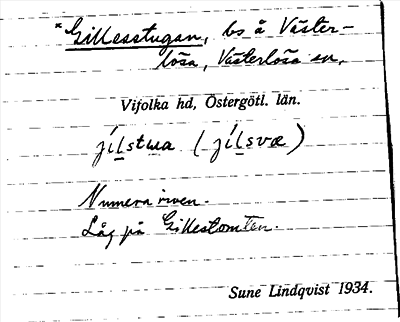 *Gillesstugan, bs å Väster-
lösa, Västerlösa sn,
Vifolka hd, Östergötl. län.
jílstua (jílsvæ)
Numera riven.
Låg på Gillestomten.
Sune Lindqvist 1934.